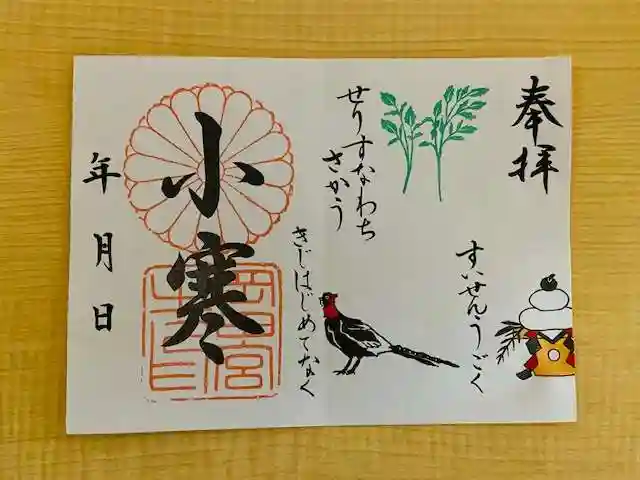 奉拝
すいせんうごく
せりすなわち
さかう
きじはじめてなく
小寒
年 月 日